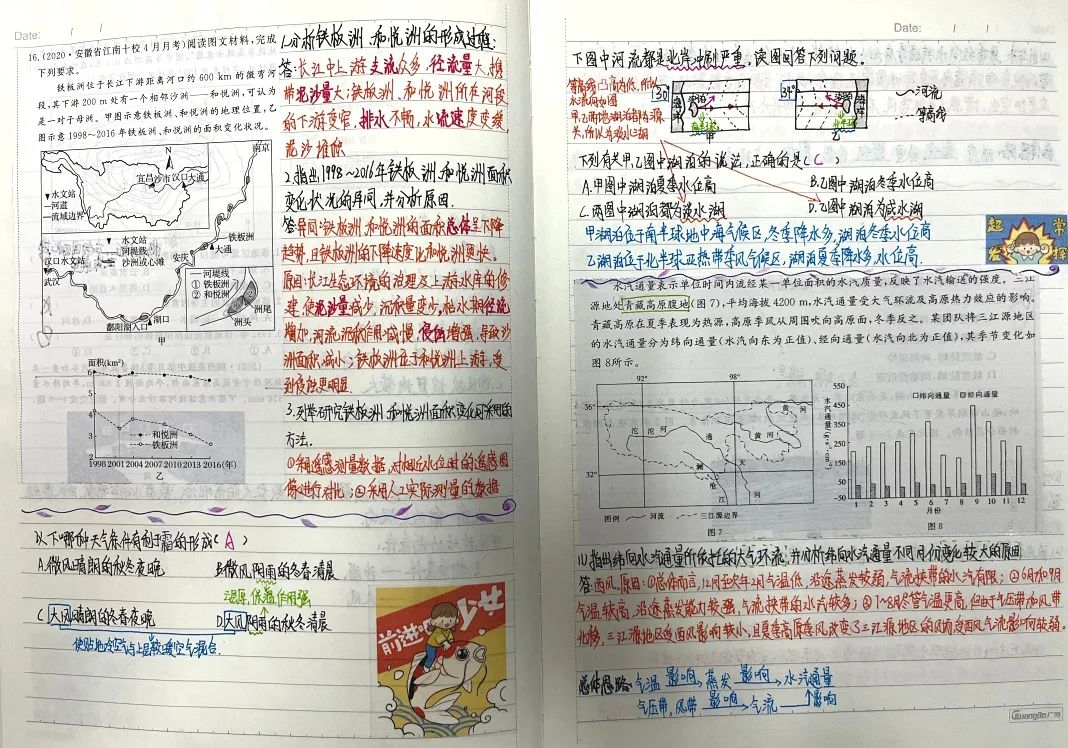 Date: / /
16.(2020·安徽省江南十校4月月考)阅读图文材料,完成
下列要求。
铁板洲位于长江下游距离河口约 600 km 的微弯河
段,其下游 200 m 处有一个相邻沙洲——和悦洲,可认为
是一对子母洲。甲图示意铁板洲、和悦洲的地理位置,乙
图示意1998~2016年铁板洲、和悦洲的面积变化状况。
N
南京
宜昌 沙市 汉口 大通
水文站
河道
流域边界
水文站
河堤线
沙洲或心滩
汉口水文站
武汉
安庆
铁板洲
大通
河堤线
① 铁板洲
② 和悦洲
洲尾
洲头
湖口
鄱阳湖入口
甲
面积(km²)
6
5
4
3
2
和悦洲
铁板洲
1998 2001 2004 2007 2010 2013 2016(年)
乙
1.分析铁板洲、和悦洲的形成过程:
答:长江中上游支流众多,径流量大,携
带泥沙量大;铁板洲、和悦洲所在河段
的下游变窄,排水不畅,水流速度变缓,
泥沙堆积
2.指出1998~2016年铁板洲、和悦洲面积
变化状况的异同,并分析原因.
答:异同:铁板洲和悦洲的面积总体呈下降
趋势,且铁板洲的下降速度比和悦洲更快。
原因:长江生态环境的治理及上游水库的修
建,使泥沙量减少,沉积量变少,枯水期径流
增加,河流沉积作用减慢,侵蚀增强,导致沙
洲面积减小;铁板洲位于和悦洲上游,受
到侵蚀更明显.
3.列举研究铁板洲、和悦洲面积变化可采用的
方法.
①利用遥感测量数据,对相近水位时的遥感图
像进行对比;②采用人工实际测量的数据
以下哪种天气条件有利于霜的形成( A )
A.微风晴朗的秋冬夜晚
B.微风阴雨的冬春清晨
湿厚,保温作用强
C.大风晴朗的冬春夜晚
D.大风阴雨的秋冬清晨
使贴地冷空气与上层较暖空气混合.
前进
少女
Date: / /
下图中河流都是北岸冲刷严重,读图回答下列问题。
甲
乙
河流
等高线
下列有关甲、乙图中湖泊的说法,正确的是( C )
A.甲图中湖泊夏季水位高
B.乙图中湖泊冬季水位高
C.两图中湖泊都为淡水湖
D.乙图中湖泊为咸水湖
甲湖泊位于南半球地中海气候区,冬季降水多,湖泊冬季水位高
乙湖泊位于北半球亚热带季风气候区,湖泊夏季降水多,水位高.
超常发挥
水汽通量表示单位时间内流经某一单位面积的水汽质量,反映了水汽输送的强度。三江
源地处青藏高原腹地(图7),平均海拔 4200 m,水汽通量受大气环流及高原热力效应的影响,
青藏高原在夏季表现为热源,高原季风从周围吹向高原面,冬季反之。某团队将三江源地区
的水汽通量分为纬向通量(水汽向东为正值)、经向通量(水汽向北为正值),其季节变化如
图8所示。
92° 98°
36°
32°
沱 沱 河
通 天 河
黄 河
黄 河
澜 沧 江
图例 河流 三江源边界
图 7
水汽通量
纬向通量 经向通量
550
450
350
250
150
50
-50
1 2 3 4 5 6 7 8 9 10 11 12
月份
图 8
(1)指出纬向水汽通量所依托的大气环流,并分析纬向水汽通量不同月份变化较大的原因
答:西风,原因:①总体而言,12月至次年2月气温低,沿途蒸发较弱,气流挟带的水汽有限;②6月和9月
气温较高,沿途蒸发能力较强,气流挟带的水汽较多;③7~8月尽管气温更高,但由于气压带和风带
北移,三江源地区受西风影响较小,且夏季高原季风改变了三江源地区的风场,受西风气流影响较弱.
总体思路:气温 影响→ 蒸发 影响→ 水汽通量
气压带,风带 影响→ 气流 影响
GuangBo 广博